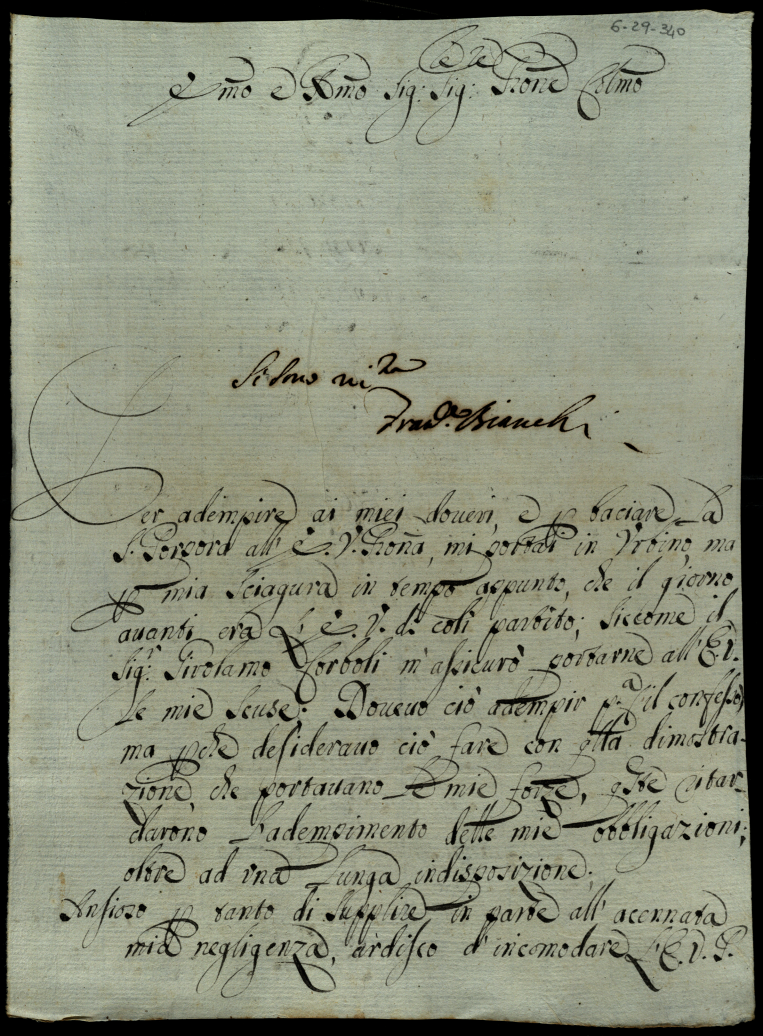 6-29-340
Emo e Rmo Sig: Sig: Prone Colmo
Si sono
Bianchi
Per adempire ai miei doveri, e p baciare La
S. Porpora all' E. V. Prona, mi portai in Vrbino, ma
p mia Sciagura in tempo appunto, che il giorno
auanti era L' E. V. di coli partito; siccome il
Sig.r Girolamo Corboli m' assicurò portarne all' E. V.
Le mie scuse: Doueuo ciò adempir p.a il confesso,
ma pche desiderauo ciò fare con qlla dimostra-
zione, che portauano Le mie forze, qste ritar-
darono L'adempimento delle mie obbligazioni;
oltre ad vna Lunga indisposizione.
Ansioso p tanto di supplire in parte all' acennata
mia negligenza, ardisco d' incomodare L' E. V. P.